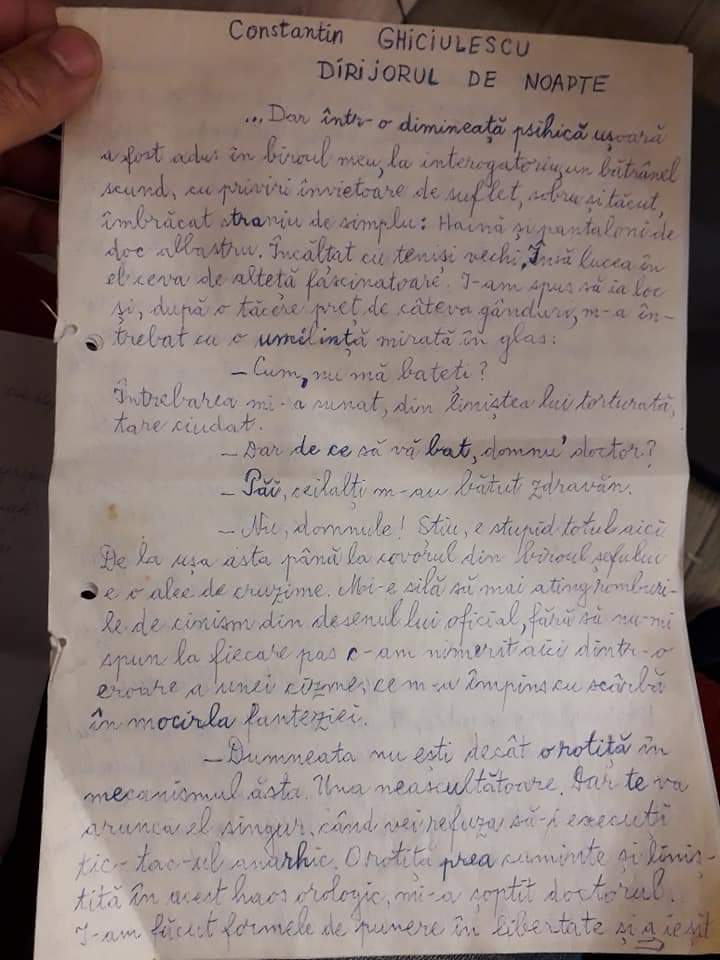 Constantin GHICIULESCU
DIRIJORUL DE NOAPTE
...Dar într-o dimineață psihică ușoară
a fost adus în biroul meu, la interogatoriu, un bătrânel
scund, cu priviri învietoare de suflet, sobru și tăcut,
îmbrăcat straniu de simplu: Haină și pantaloni de
doc albastru. Încălțat cu teniși vechi. Însă lucea în
el ceva de alteță fascinatoare. I-am spus să ia loc
și, după o tăcere preț de câteva gânduri, m-a în-
trebat cu o umilință mirată în glas:
- Cum, nu mă bateți?
Întrebarea mi-a sunat, din liniștea lui torturată,
tare ciudat.
- Dar de ce să vă bat, domnu' doctor?
- Păi, ceilalți m-au bătut zdravăn.
- Nu, domnule! Știu, e stupid totul aici
De la ușa asta până la covorul din biroul șefului
e o alee de cruzime. Mi-e silă să mai ating romburi-
le de cinism din desenul lui oficial, fără să nu-mi
spun la fiecare pas c-am nimerit aici dintr-o
eroare a unei cizme, ce m-a împins cu scârbă
în mocirla fanteziei.
- Dumneata nu ești decât o rotiță în
mecanismul ăsta. Una neascultătoare. Dar te va
arunca el singur, când vei refuza să-i execuți
tic-tac-ul anarhic. O rotiță prea cuminte și liniș-
tită în acest haos orologic, mi-a șoptit doctorul.
I-am făcut formele de punere în libertate și a ieșit